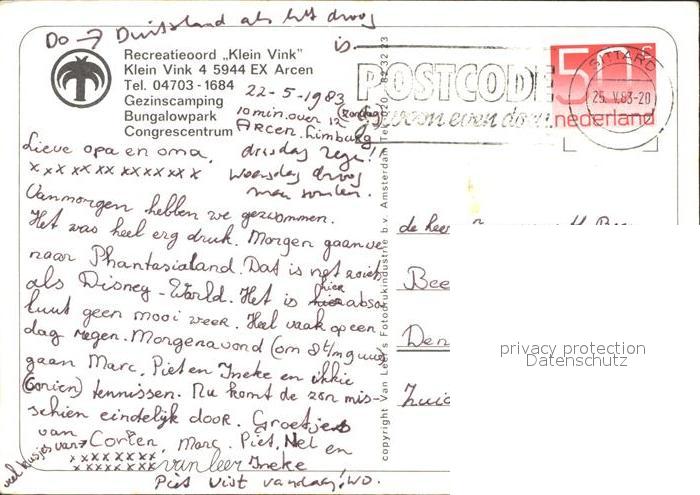 Do → Duitsland als het droog
is.
Recreatieoord „Klein Vink"
Klein Vink 4 5944 EX Arcen
Tel. 04703 - 1684
Gezinscamping
Bungalowpark
Congrescentrum
22-5-1983
10 min. over 12 (zondag)
Arcen. Limburg
dinsdag regen!
woensdag droog
Lieve opa en oma,
x x x x x x x x x x x x
Vanmorgen hebben we gezwommen.
Het was heel erg druk. Morgen gaan we
naar Phantasialand. Dat is net zoiets
als Disney-World. Het is hier abso-
luut geen mooi weer. Heel vaak op een
dag regen. Morgenavond (om 8 t/m 9 uur)
gaan Marc, Piet en Ineke en ikkie
(Corien) tennissen. Nu komt de zon mis-
schien eindelijk door. Groetjes
van Corien, Marc, Piet, Nel en
veel kusjes van →
x x x x x x x x van leer Ineke
Piet vist vandaag! wo.
copyright Van Leer's Fotodrukindustrie b.v. Amsterdam Tel. 020 - 82 32 23
POSTCODE
gewoon even doen
50 c
nederland
SITTARD
25. V. 83-20
de heer
Bee
Den
Zuid
privacy protection
Datenschutz